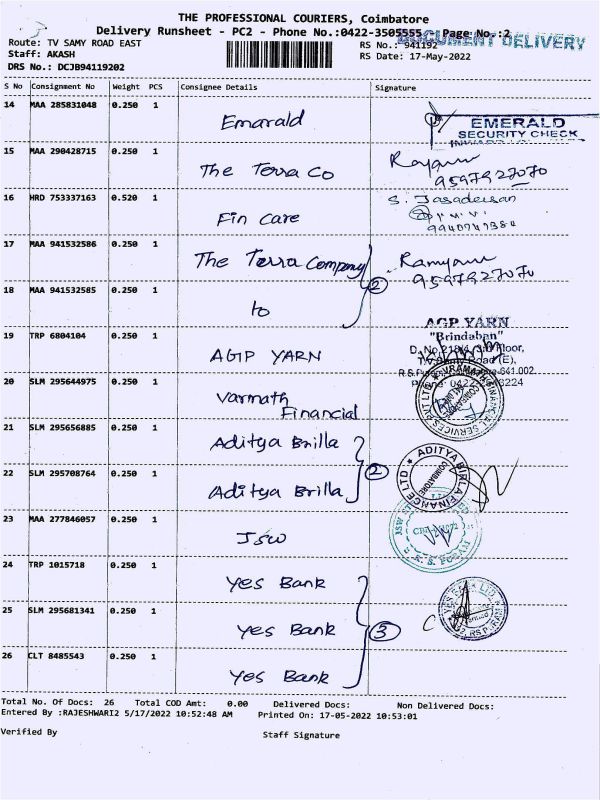 THE PROFESSIONAL COURIERS, Coimbatore
Delivery Runsheet - PC2 - Phone No.:0422-3505555 Page No.:2
DOCUMENT DELIVERY
Route: TV SAMY ROAD EAST
RS No.: 941192
Staff: AKASH
RS Date: 17-May-2022
DRS No.: DCJB94119202
S No Consignment No Weight PCS Consignee Details Signature
14 MAA 285831048 0.250 1 Emarald
EMERALD
SECURITY CHECK
15 MAA 290428715 0.250 1 The Terra Co
9597927070
16 HRD 753337163 0.520 1 Fin Care
17 MAA 941532586 0.250 1 The Terra Company
2
Ramyaa
9597927070
18 MAA 941532585 0.250 1 to
19 TRP 6804104 0.250 1 AGP YARN
AGP YARN
"Brindaban"
20 SLM 295644975 0.250 1 Varmath
Financial
21 SLM 295656885 0.250 1 Aditya Brilla
2
22 SLM 295708764 0.250 1 Aditya Brilla
ADITYA BIRLA FINANCE LTD
COIMBATORE
23 MAA 277846057 0.250 1 JSW
JSW
R. S. PURAM
24 TRP 1015718 0.250 1 Yes Bank
25 SLM 295681341 0.250 1 Yes Bank
3
YES BANK LTD
RS PURAM
26 CLT 8485543 0.250 1 Yes Bank
Total No. Of Docs: 26 Total COD Amt: 0.00 Delivered Docs: Non Delivered Docs:
Entered By :RAJESHWARI2 5/17/2022 10:52:48 AM Printed On: 17-05-2022 10:53:01
Verified By Staff Signature